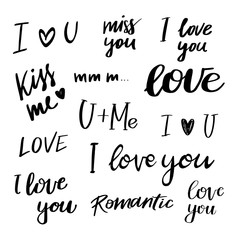 I ♥ U
miss
you
I love
you
Kiss
me ♥
mm m...
love
U+Me
I ♥ U
LOVE
I love you
I love
you
Romantic
love
you